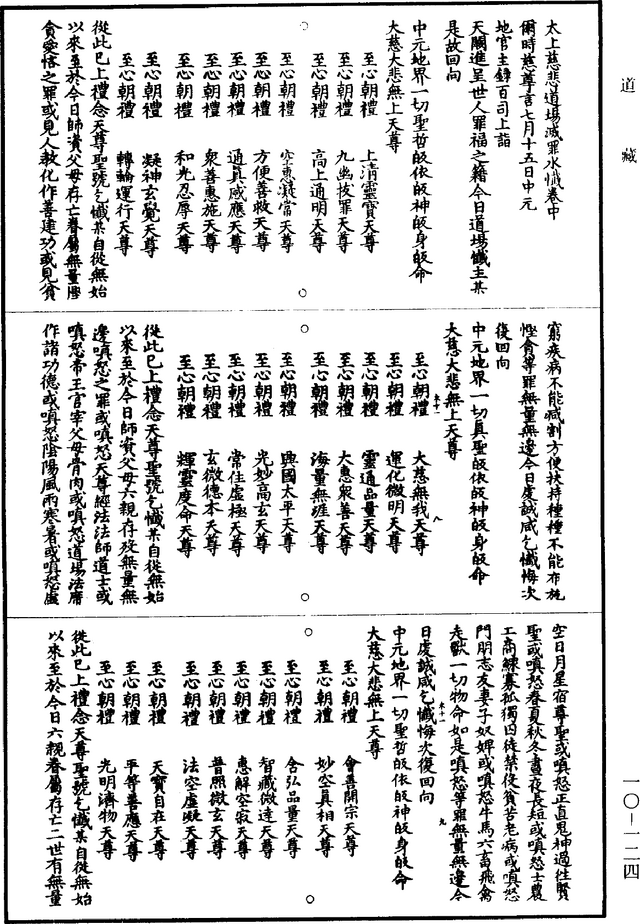 道藏
太上慈悲道場滅罪水懺卷中
爾時慈尊言七月十五日中元
地官主錄百司上詣
天闕進呈世人罪福之籍今日道場懺主某
是故回向
中元地界一切聖哲皈依皈神皈身皈命
大慈大悲無上天尊
至心朝禮 上清靈寶天尊
至心朝禮 九幽拔罪天尊
至心朝禮 高上通明天尊
至心朝禮 空惠凝常天尊
至心朝禮 方便善救天尊
至心朝禮 通真感應天尊
至心朝禮 眾善惠施天尊
至心朝禮 和光忍辱天尊
至心朝禮 凝神玄覺天尊
至心朝禮 轉輪運行天尊
從此已上禮念天尊聖號乞懺某自從無始
以來至於今日師資父母存亡眷屬無量慳
貪愛悋之罪或見人教化作善建功或見貧
窮疾病不能減割方便扶持種種不能布施
慳貪等罪無量無邊今日虔誠咸乞懺悔次
復回向
中元地界一切真聖皈依皈神皈身皈命
大慈大悲無上天尊
至心朝禮 大慈無我天尊
至心朝禮 運化微明天尊
至心朝禮 靈通品量天尊
至心朝禮 大惠眾善天尊
至心朝禮 海量無涯天尊
至心朝禮 興國太平天尊
至心朝禮 光妙高玄天尊
至心朝禮 常住虛極天尊
至心朝禮 玄微德本天尊
至心朝禮 輝靈度命天尊
從此已上禮念天尊聖號乞懺某自從無始
以來至於今日師資父母六親存歿無量無
邊嗔怒之罪或嗔怒天尊經法法師道士或
嗔怒帝王官宰父母骨肉或嗔怒道場法席
作諸功德或嗔怒陰陽風雨寒暑或嗔怒虛
空日月星宿尊聖或嗔怒正直鬼神過往賢
聖或嗔怒春夏秋冬晝夜長短或嗔怒士農
工商鰥寡孤獨囚徒禁役貧苦老病或嗔怒
門朋志友妻子奴婢或嗔怒牛馬六畜飛禽
走獸一切物命如是嗔怒等罪無量無邊今
日虔誠咸乞懺悔次復回向
中元地界一切聖哲皈依皈神皈身皈命
大慈大悲無上天尊
至心朝禮 會善開宗天尊
至心朝禮 妙空真相天尊
至心朝禮 含弘品量天尊
至心朝禮 智藏微達天尊
至心朝禮 惠解空寂天尊
至心朝禮 普照微玄天尊
至心朝禮 法空虛凝天尊
至心朝禮 天寶自在天尊
至心朝禮 平等善應天尊
至心朝禮 光明濟物天尊
從此已上禮念天尊聖號乞懺某自從無始
以來至於今日六親眷屬存亡二世有無量
一〇-一二四